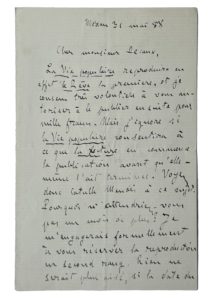 Médan 31 mai 88
Cher monsieur
La Vie populaire reproduira en
effet le Rêve la première, et je
consens très volontiers à vous au-
toriser à le publier ensuite pour
mille francs. Mais j'ignore si
la Vie populaire consentira à
ce que la en commence
la publication avant qu'elle-
même l'ait terminée. Voyez
donc Catulle Mendès à ce sujet.
Pourquoi n'attendriez-vous
pas un mois de plus? Je
m'engagerais formellement
à vous réserver la reproduction
en second rang. Rien ne
serait plus aisé, si la date du